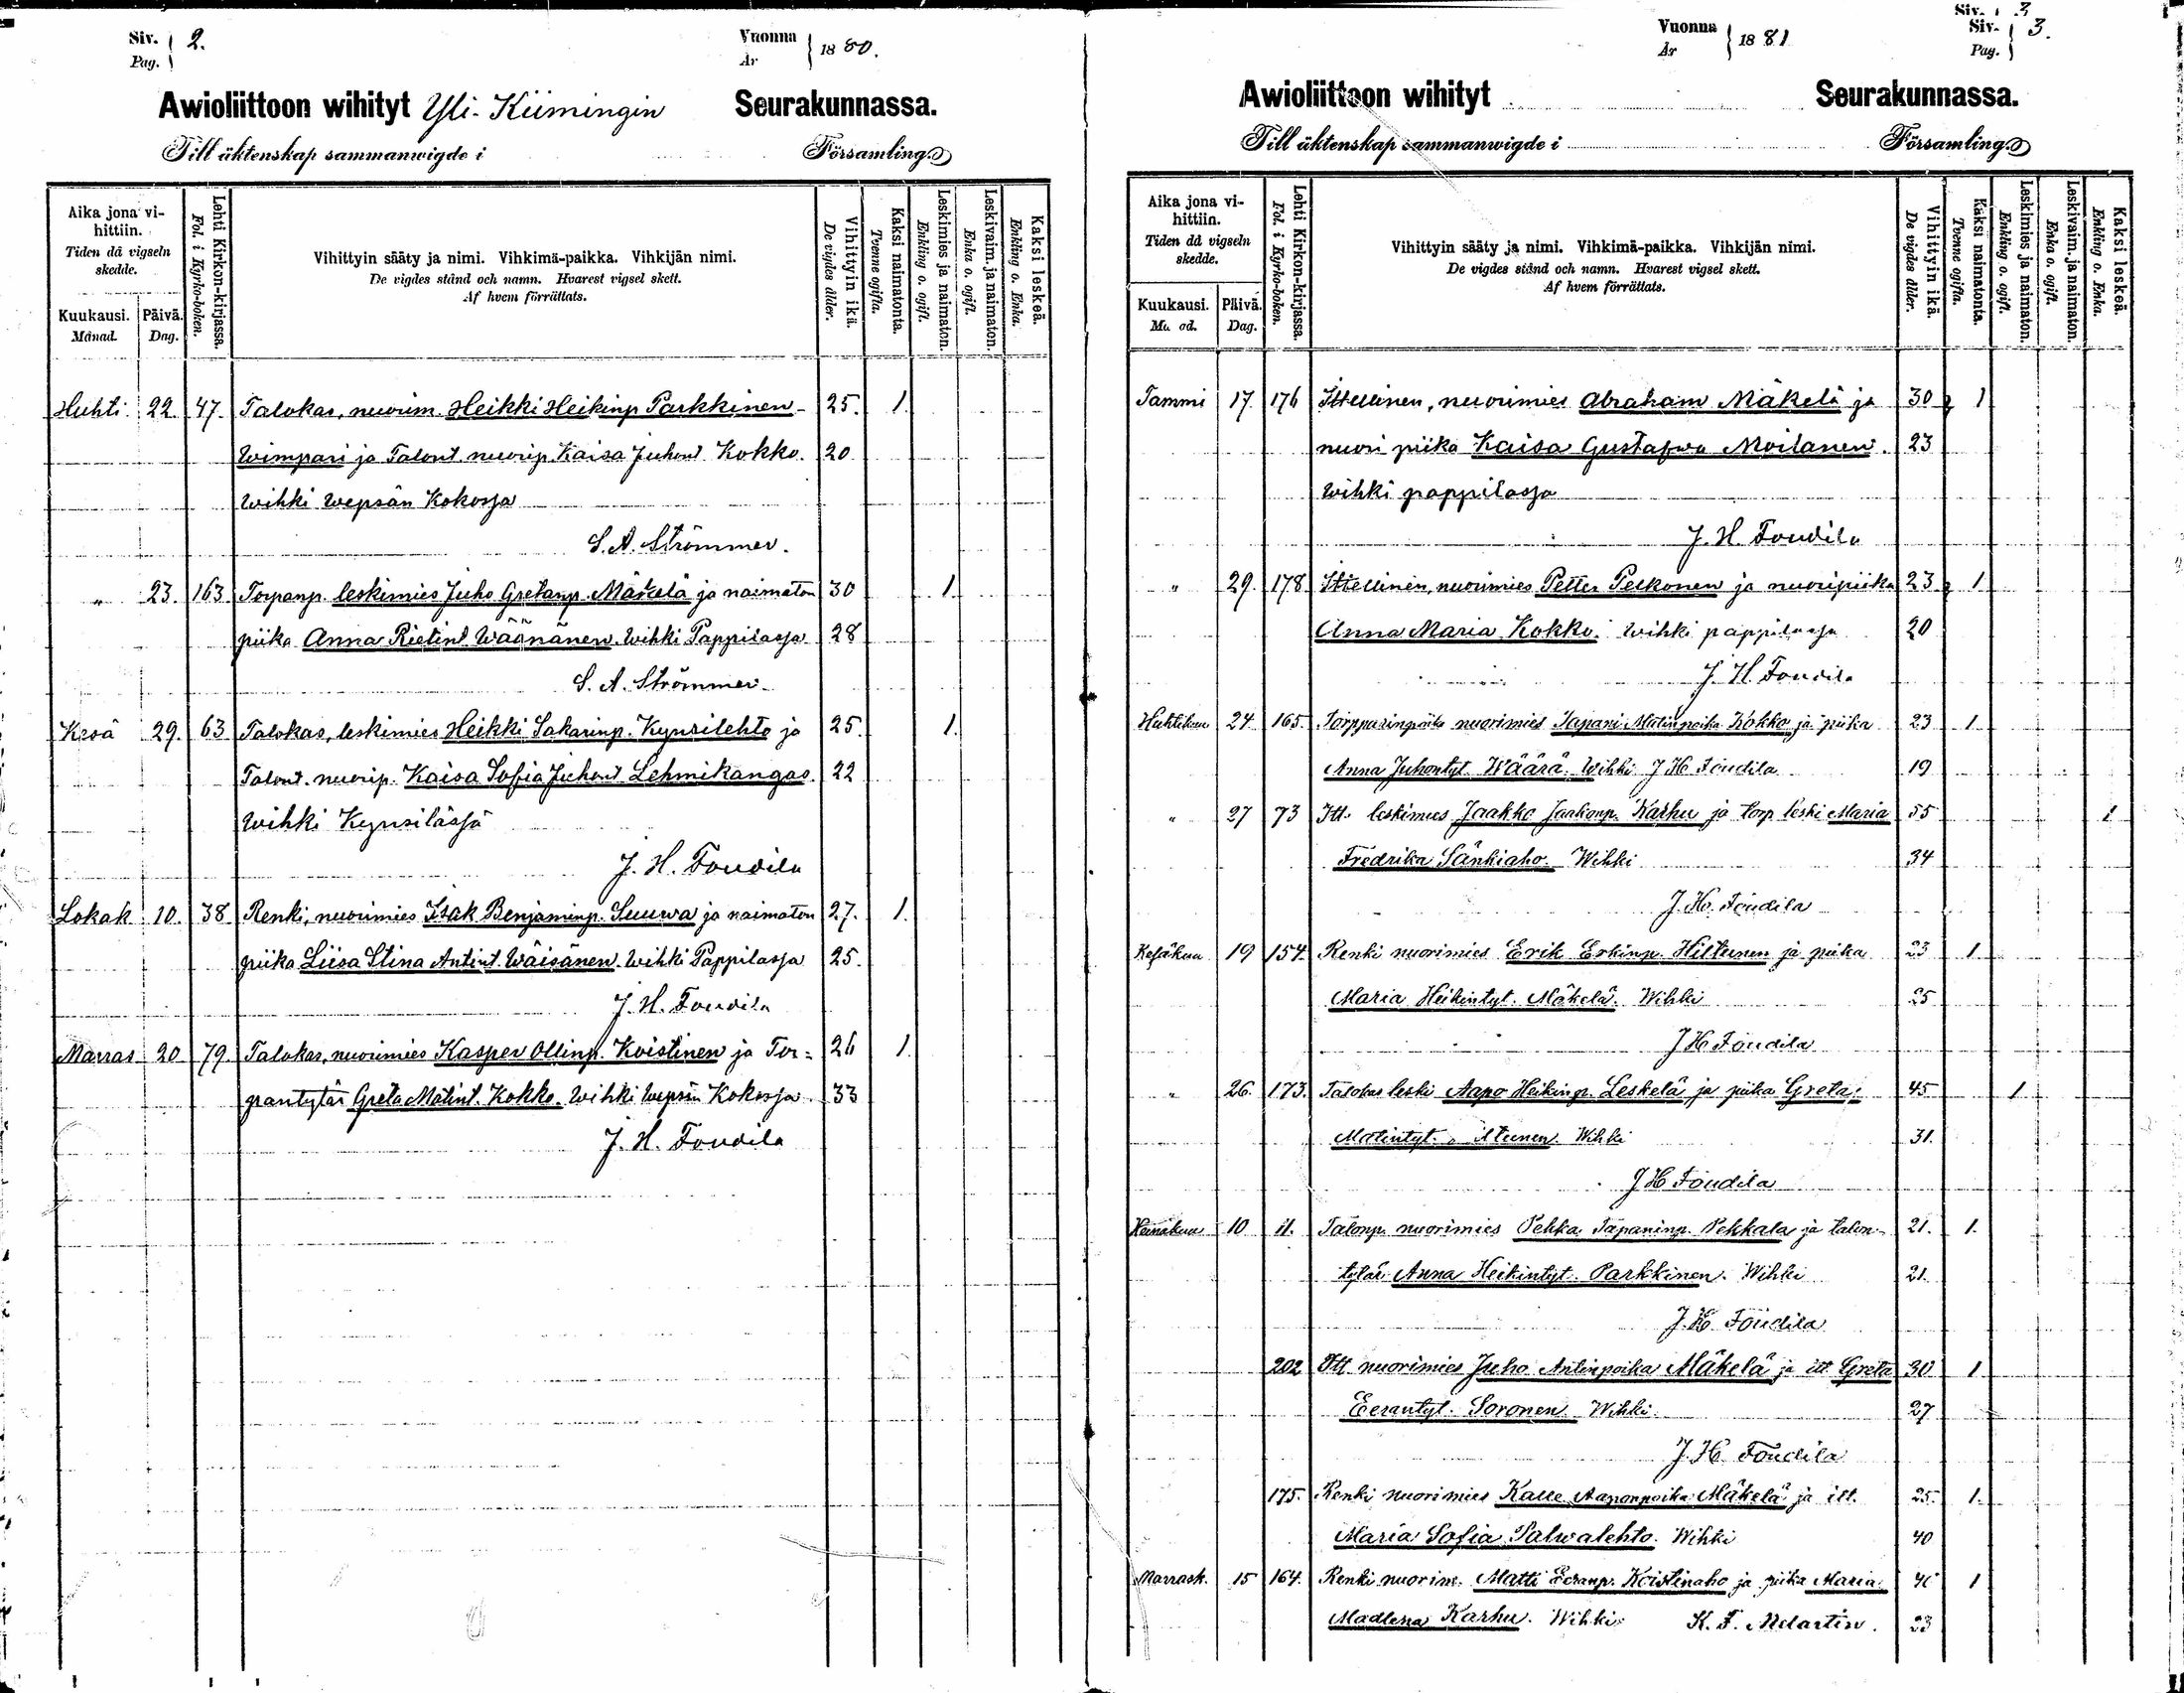 Siv. 2.
Pag.
Vuonna 1880.
År
Awioliittoon wihityt Yli-Kiimingin Seurakunnassa.
Till äktenskap sammanwigde i Församling.
Aika jona vihittiin.
Tiden då vigseln skedde.
Kuukausi. Månad.
Päivä. Dag.
Lehti Kirkon-kirjassa. Fol. i Kyrko-boken.
Vihittyin sääty ja nimi. Vihkimä-paikka. Vihkijän nimi.
De vigdes stånd och namn. Hvarest vigsel skett.
Af hvem förrättats.
Vihittyin ikä. De vigdes ålder.
Kaksi naimatonta. Tvenne ogifta.
Leskimies ja naimaton. Enkling o. ogift.
Leskivaim. ja naimaton. Enka o. ogift.
Kaksi leskeä. Enkling o. Enka.
Huhti. 22. 47. Talokas, nuorim. Heikki Heikinp Parkkinen- 25. 1.
Wimpari ja Talont. nuorip. Kaisa Juhont Kokko. 20
Wihki Wepsän Kokossa
S. A. Strömmer.
" 23. 163 Torpanp. leskimies Juho Gretanp. Mäkelä ja naimaton 30 1.
piika Anna Rietint Wäänänen. Wihki Pappilassa 28
S. A. Strömmer
Kesä 29. 63 Talokas, leskimies Heikki Sakarinp. Kynsilehto ja 25. 1.
Talont. nuorip. Kaisa Sofia Juhont Lehmikangas. 22
Wihki Kynsilässä
J. H. Toudila
Lokak 10. 38 Renki, nuorimies Isak Benjaminp. Suuwa ja naimaton 27. 1.
piika Liisa Stina Antint. Wäisänen. Wihki Pappilassa 25.
J. H. Toudila
Marras 20 79. Talokas, nuorimies Kasper Ollinp. Koistinen ja Tor= 26 1.
pantytär Greta Matint. Kokko. Wihki Wepsän Kokossa 33
J. H. Toudila
Siv. 3
Vuonna 1881
År
Siv. 3.
Pag.
Awioliittoon wihityt Seurakunnassa.
Till äktenskap sammanwigde i Församling.
Aika jona vihittiin.
Tiden då vigseln skedde.
Kuukausi.
Päivä. Dag.
Lehti Kirkon-kirjassa. Fol. i Kyrko-boken.
Vihittyin sääty ja nimi. Vihkimä-paikka. Vihkijän nimi.
De vigdes stånd och namn. Hvarest vigsel skett.
Af hvem förrättats.
Vihittyin ikä. De vigdes ålder.
Kaksi naimatonta. Tvenne ogifta.
Leskimies ja naimaton. Enkling o. ogift.
Leskivaim. ja naimaton. Enka o. ogift.
Kaksi leskeä. Enkling o. Enka.
Tammi 17. 176 Ittellinen, nuorimies Abraham Mäkelä ja 30 1
nuori piika Kaisa Gustafwa Moilanen. 23
Wihki pappilassa
J. H. Toudila
" 29. 178 Ittellinen, nuorimies Petter Pelkonen ja nuoripiika 23 1.
Anna Maria Kokko. Wihki pappilassa 20
J. H. Toudila
Huhtikuu 24. 165. Torpparinpoika nuorimies Tapani Matinpoika Kokko ja piika 23 1.
Anna Juhontyt. Wäärä. Wihki J H Toudila 19
" 27 73 Itt. leskimies Jaakko Jaakonp. Karhu ja torp leski Maria 55 1
Fredrika Sänkiaho. Wihki 34
J. H. Toudila
Kesäkuu 19 154. Renki nuorimies Erik Erkinp. Hiltunen ja piika 23 1.
Maria Heikintyt. Mäkelä. Wihki 25
J H Toudila
" 26. 173. Talokas leski Aapo Heikinp. Leskelä ja piika Greta 45 1
Matintyt. Wihki 31.
J H Toudila
Heinäkuu 10 11. Talonp. nuorimies Pekka Tapaninp. Pekkala ja talon- 21. 1.
tytär Anna Heikintyt. Parkkinen. Wihki 21.
J. H. Toudila
202 Itt. nuorimies Juho Antinpoika Mäkelä ja itt. Greta 30 1
Eerantyt. Soronen Wihki 27
J. H. Toudila
175. Renki nuorimies Kalle Aaponpoika Mäkelä ja itt. 25. 1.
Maria Sofia Palwalehto. Wihki 40
Marrask. 15 164. Renki nuorim. Matti Eeranp. Koistinaho ja piika Maria 1
Madlena Karhu. Wihki K. F. Melartin. 23